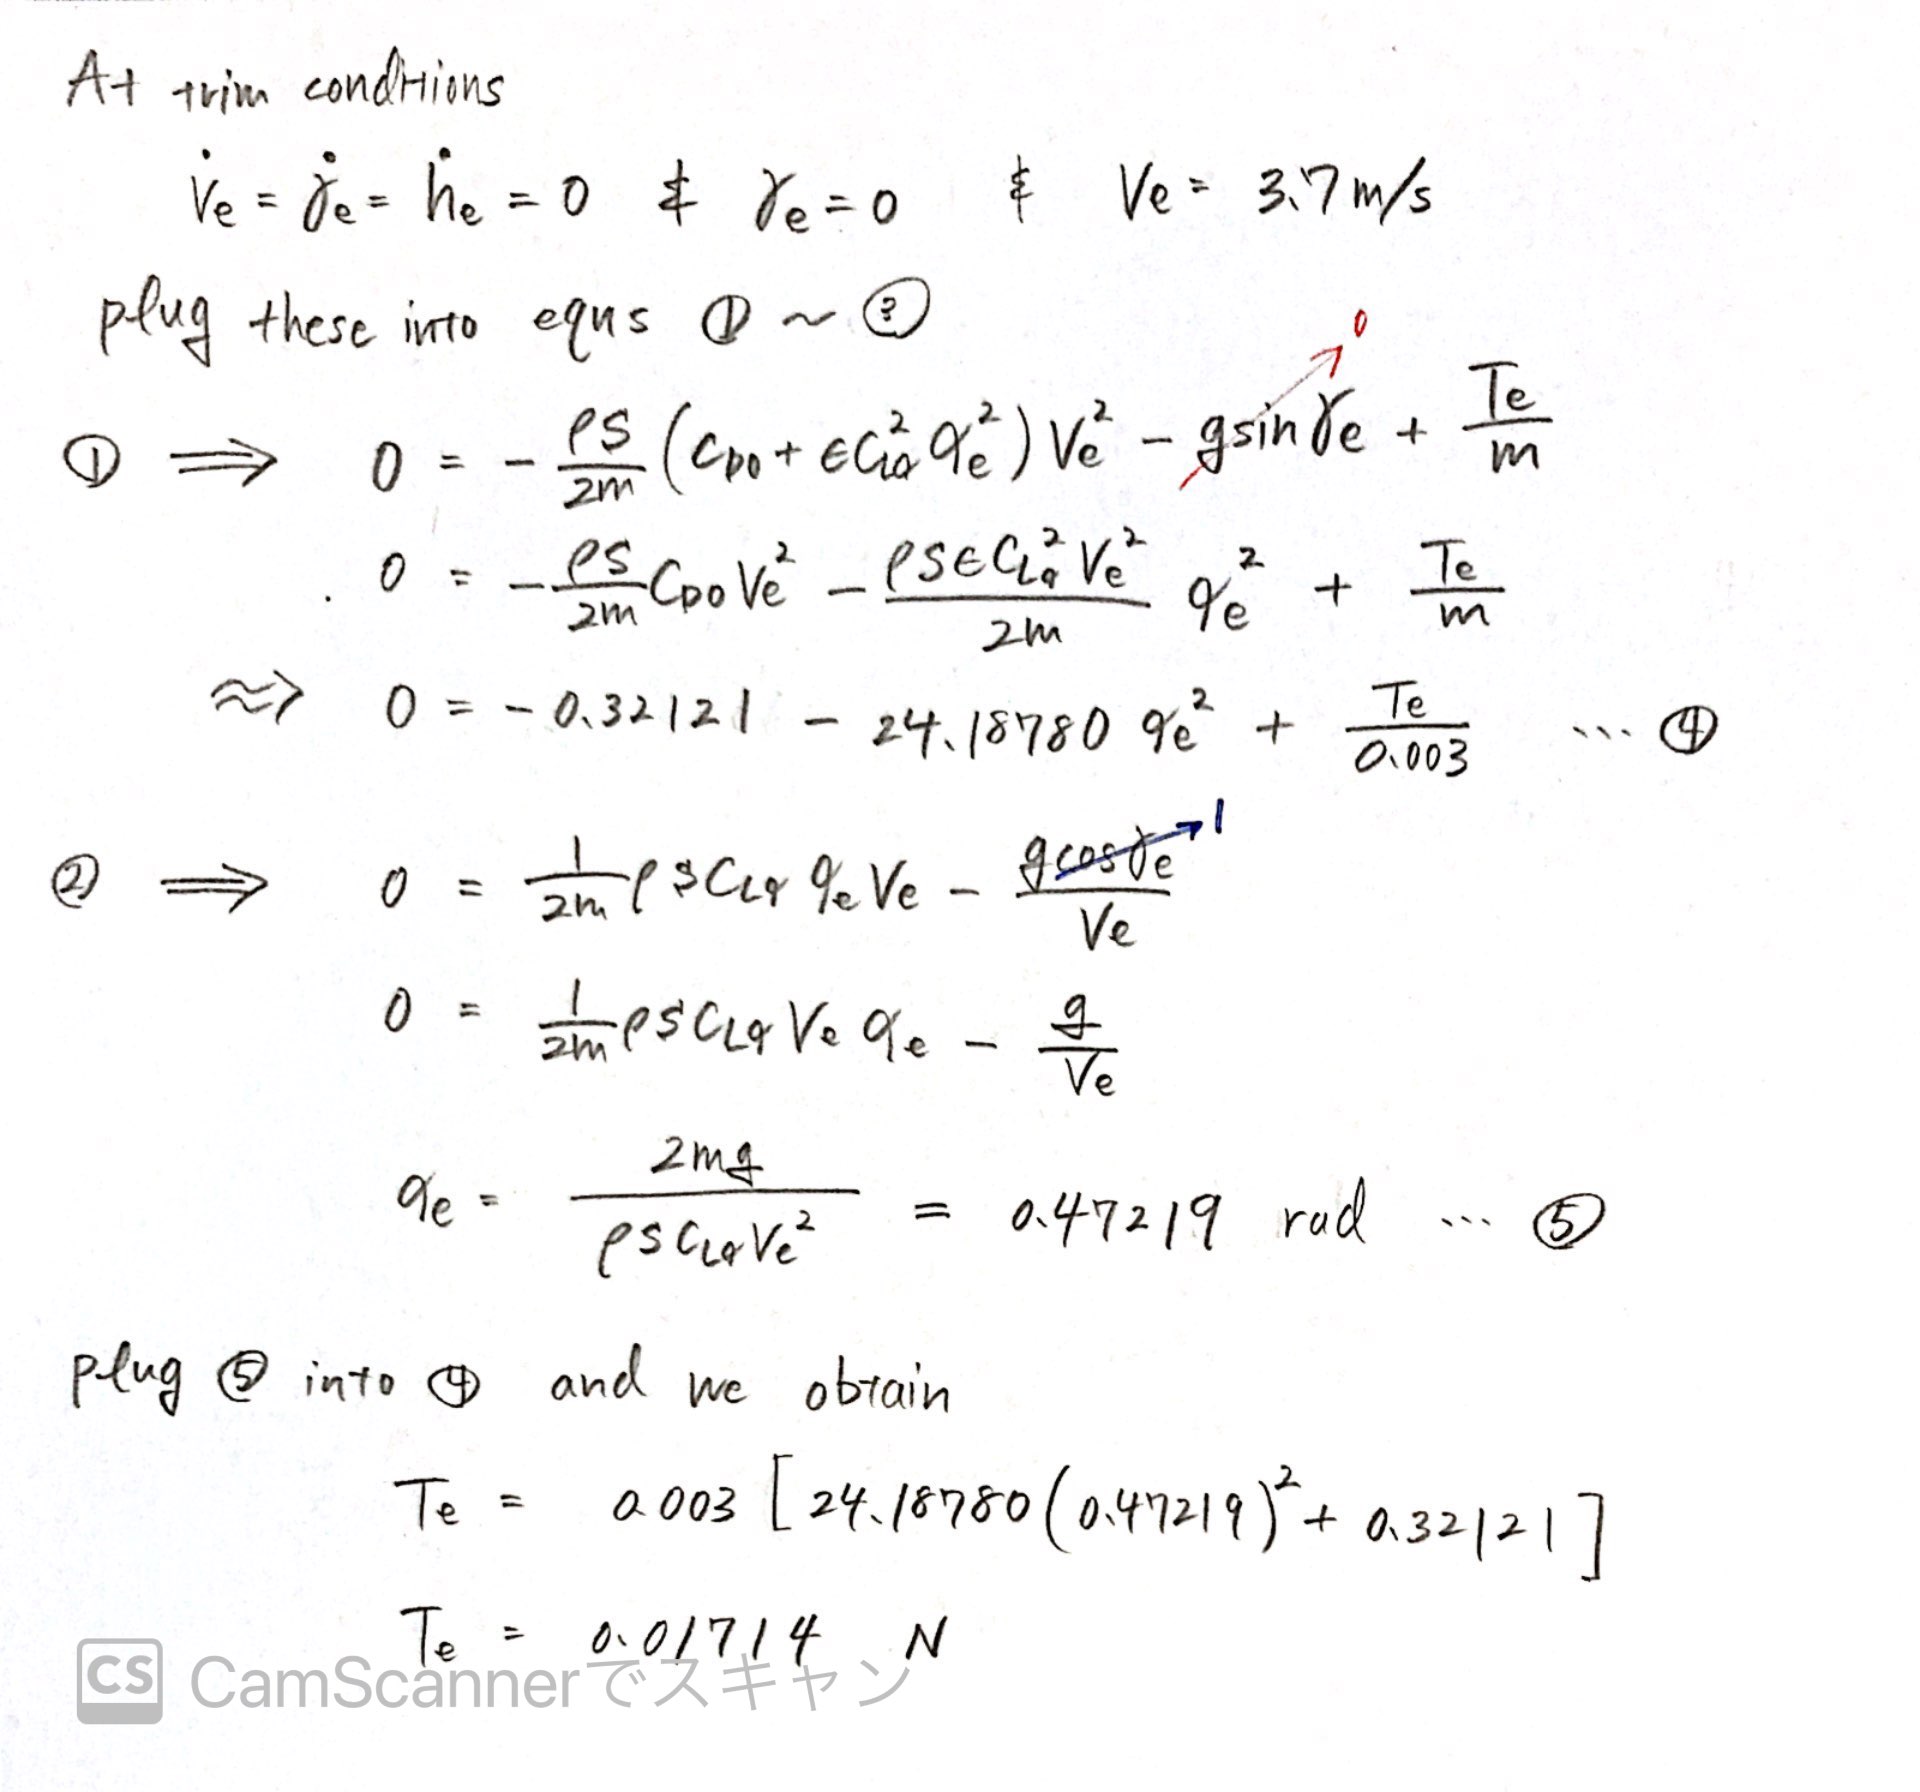 At trim conditions
V̇e = γ̇e = ḣe = 0 & γe = 0 & Ve = 3.7 m/s
plug these into eqns ① ~ ③
0
① ⟹ 0 = - ρS/2m (CD0 + ϵCLα² αe²) Ve² - g sin γe + Te/m
0 = - ρS/2m CD0 Ve² - ρSϵCLα² Ve²/2m αe² + Te/m
≈> 0 = - 0.32121 - 24.18780 αe² + Te/0.003 ... ④
1
② ⟹ 0 = 1/2m ρSCLα αe Ve - g cos γe/Ve
0 = 1/2m ρSCLα Ve αe - g/Ve
αe = 2mg/ρSCLαVe² = 0.47219 rad ... ⑤
plug ⑤ into ④ and we obtain
Te = 0.003 [24.18780 (0.47219)² + 0.32121]
Te = 0.01714 N
CS CamScannerでスキャン